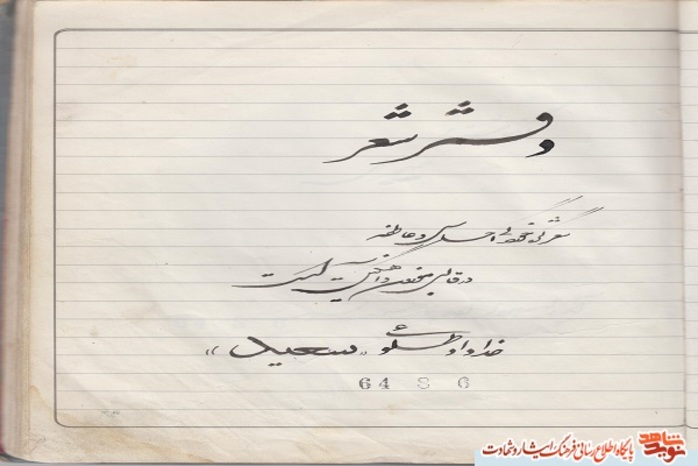 دفتر شعر
شعر گره خوردگی احساس و عاطفه
در قالبی مخصوص و آهنگین است
خداداد «سعید»
64 8 6
نوید شاهد پایگاه اطلاع رسانی فرهنگ ایثار و شهادت